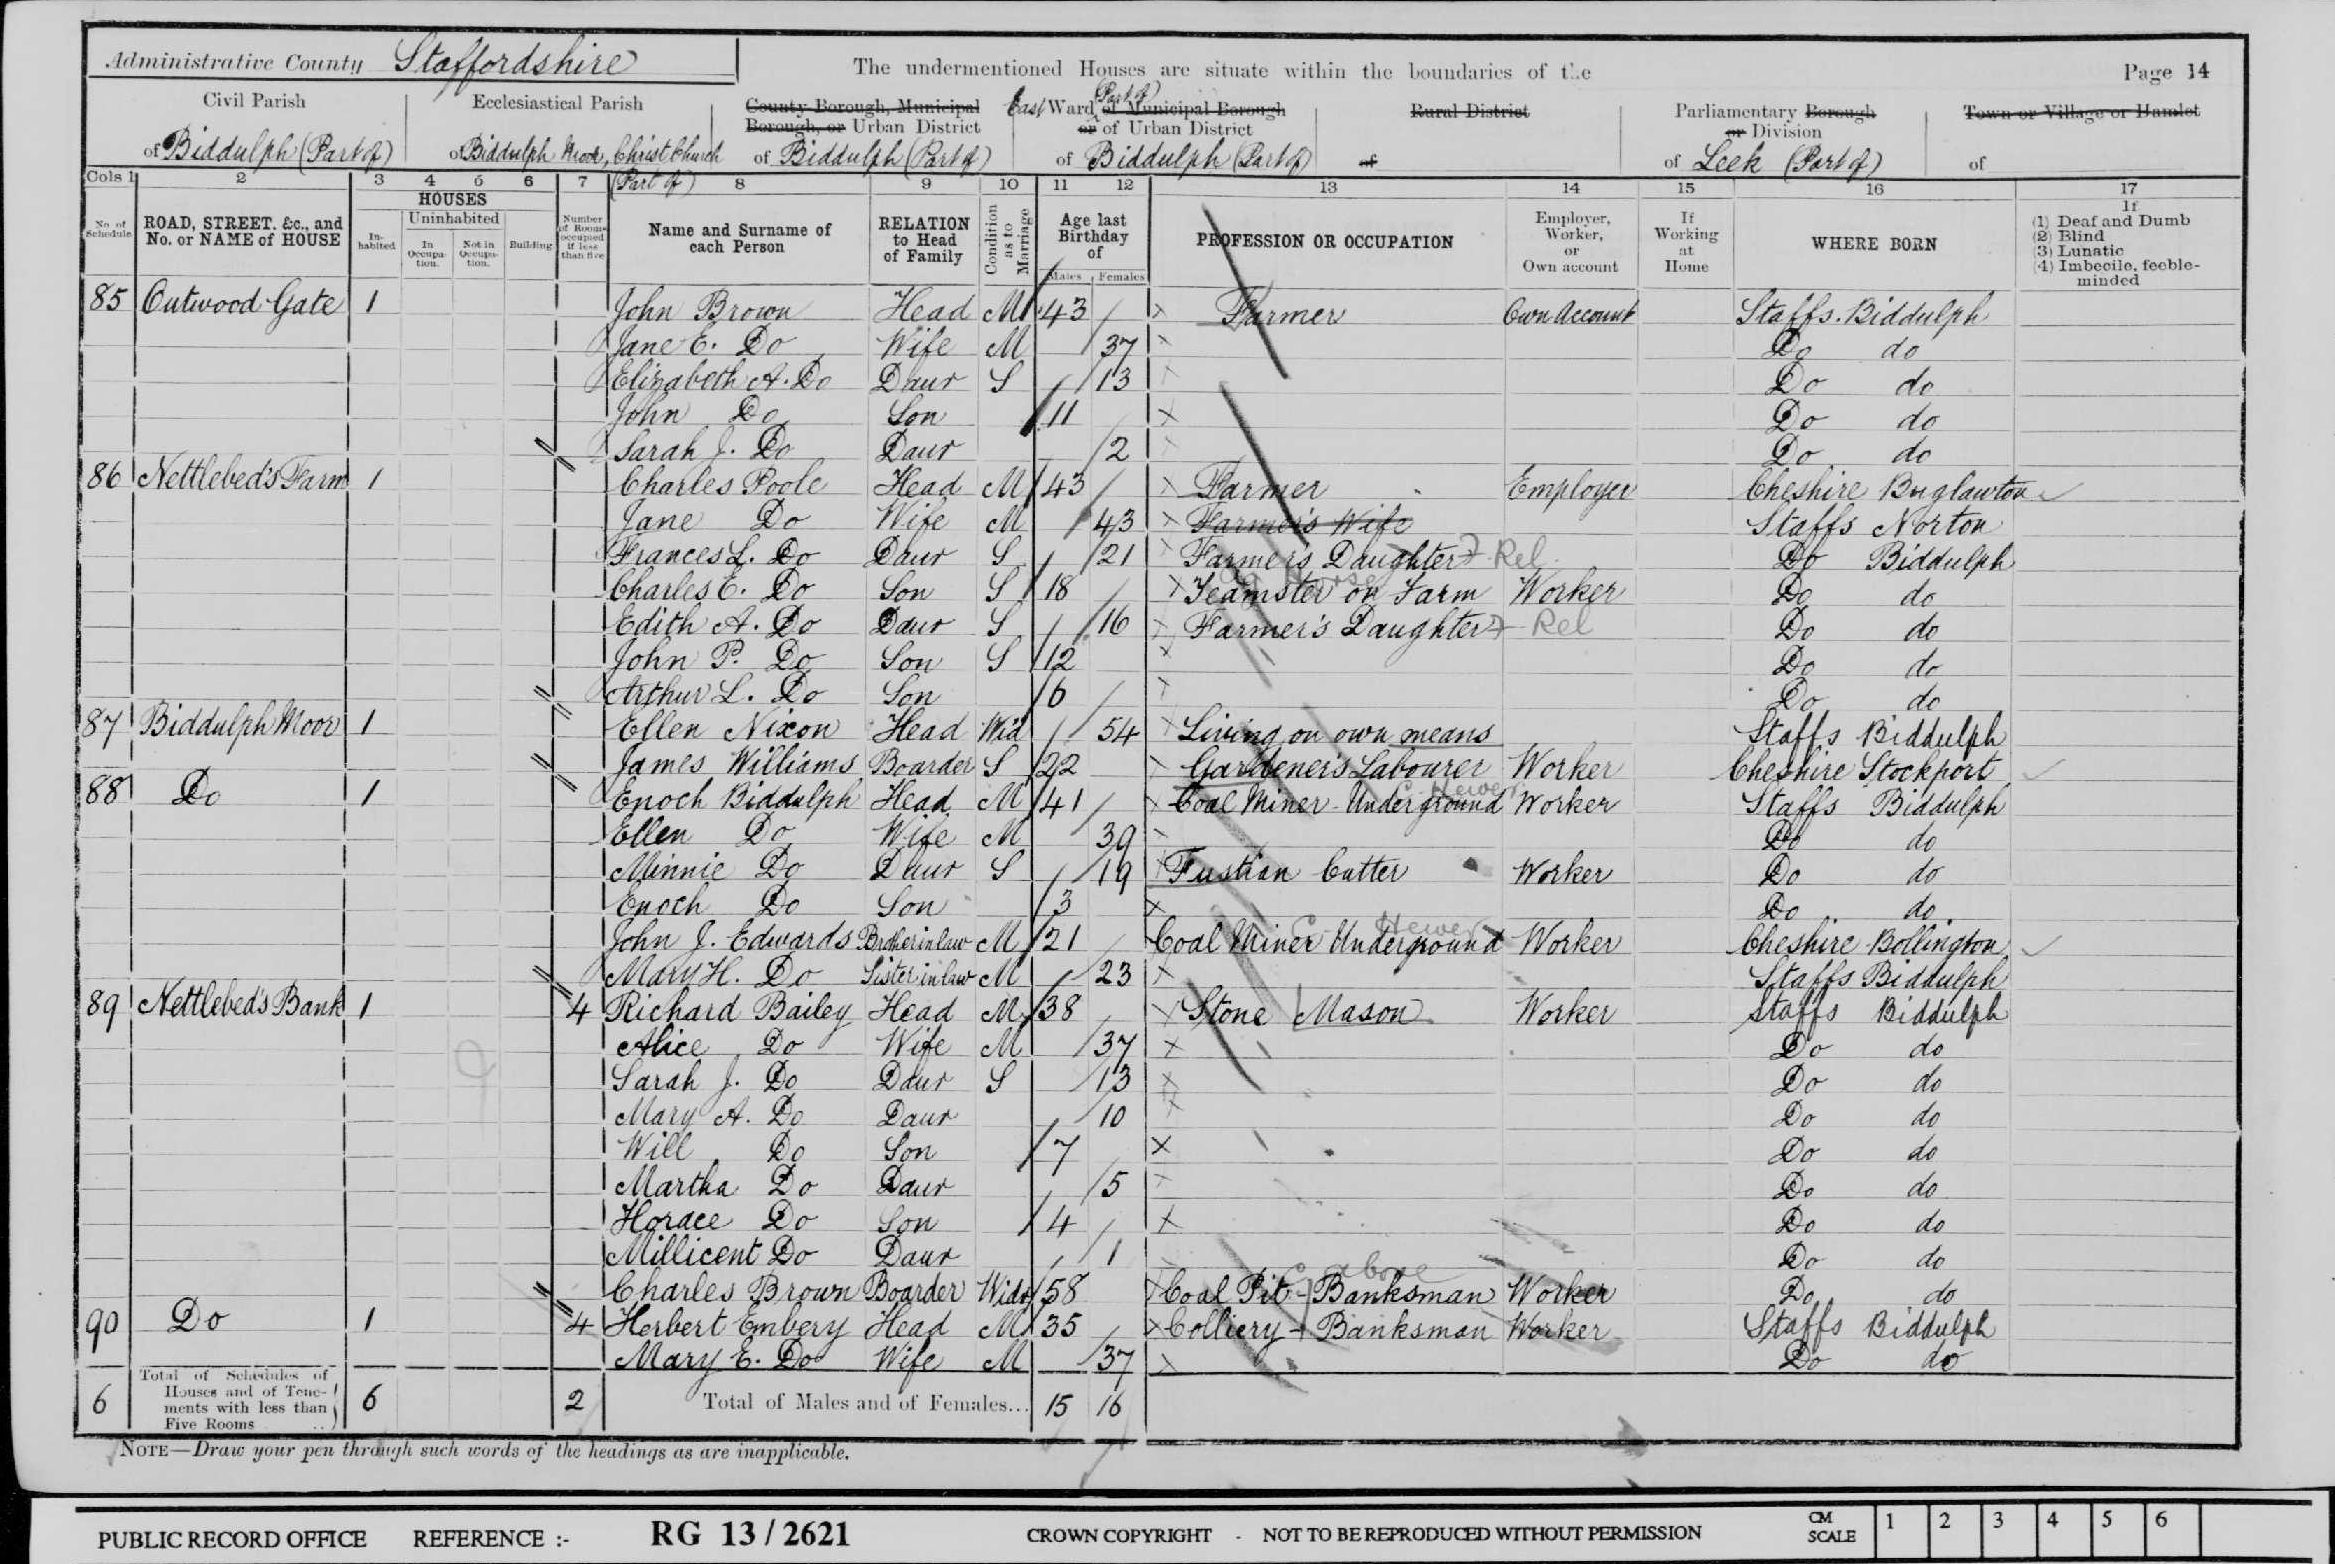 Administrative County Staffordshire
The undermentioned Houses are situate within the boundaries of the
Page 14
Civil Parish of Biddulph (Part of)
Ecclesiastical Parish of Biddulph Moor, Christ Church (Part of)
County Borough, Municipal Borough, or Urban District of Biddulph (Part of)
East Ward (Part of) of Municipal Borough or of Urban District of Biddulph (Part of)
Rural District of
Parliamentary Borough or Division of Leek (Part of)
Town or Village or Hamlet of
Cols 1 2 3 4 5 6 7 8 9 10 11 12 13 14 15 16 17
No. of Schedule
ROAD, STREET, &c., and No. or NAME of HOUSE
HOUSES
Inhabited
Uninhabited
In Occupation.
Not in Occupation.
Building
Number of Rooms occupied if less than five
Name and Surname of each Person
RELATION to Head of Family
Condition as to Marriage
Age last Birthday of
Males Females
PROFESSION OR OCCUPATION
Employer, Worker, or Own account
If Working at Home
WHERE BORN
If (1) Deaf and Dumb (2) Blind (3) Lunatic (4) Imbecile, feeble-minded
85 Outwood Gate 1 John Brown Head M 43 Farmer Own Account Staffs. Biddulph
Jane E. Do Wife M 37 Do do
Elizabeth A. Do Daur S 13 Do do
John Do Son 11 Do do
Sarah J. Do Daur 2 Do do
86 Nettlebed's Farm 1 Charles Poole Head M 43 Farmer Employer Cheshire Buglawton
Jane Do Wife M 43 Farmer's Wife Staffs Norton
Frances L. Do Daur S 21 Farmer's Daughter Rel Do Biddulph
Charles E. Do Son S 18 Teamster on Farm Worker Do do
Edith A. Do Daur S 16 Farmer's Daughter Rel Do do
John P. Do Son S 12 Do do
Arthur L. Do Son 6 Do do
87 Biddulph Moor 1 Ellen Nixon Head Wid 54 Living on own means Staffs Biddulph
James Williams Boarder S 22 Gardener's Labourer Worker Cheshire Stockport
88 Do 1 Enoch Biddulph Head M 41 Coal Miner - Underground Hewer Worker Staffs Biddulph
Ellen Do Wife M 39 Do do
Minnie Do Daur S 19 Fustian Cutter Worker Do do
Enoch Do Son 3 Do do
John J. Edwards Brotherinlaw M 21 Coal Miner Underground Hewer Worker Cheshire Bollington
Mary H. Do Sister in law M 23 Staffs Biddulph
89 Nettlebed's Bank 1 4 Richard Bailey Head M 38 Stone Mason Worker Staffs Biddulph
Alice Do Wife M 37 Do do
Sarah J. Do Daur S 13 Do do
Mary A. Do Daur 10 Do do
Will Do Son 7 Do do
Martha Do Daur 5 Do do
Horace Do Son 4 Do do
Millicent Do Daur 1 Do do
Charles Brown Boarder Widr 58 Coal Pit - Banksman above Worker Do do
90 Do 1 4 Herbert Embery Head M 35 Colliery - Banksman Worker Staffs Biddulph
Mary E. Do Wife M 37 Do do
6 Total of Schedules of Houses and of Tenements with less than Five Rooms 6 2 Total of Males and of Females... 15 16
NOTE—Draw your pen through such words of the headings as are inapplicable.
PUBLIC RECORD OFFICE REFERENCE :- RG 13 / 2621 CROWN COPYRIGHT - NOT TO BE REPRODUCED WITHOUT PERMISSION CM SCALE 1 2 3 4 5 6